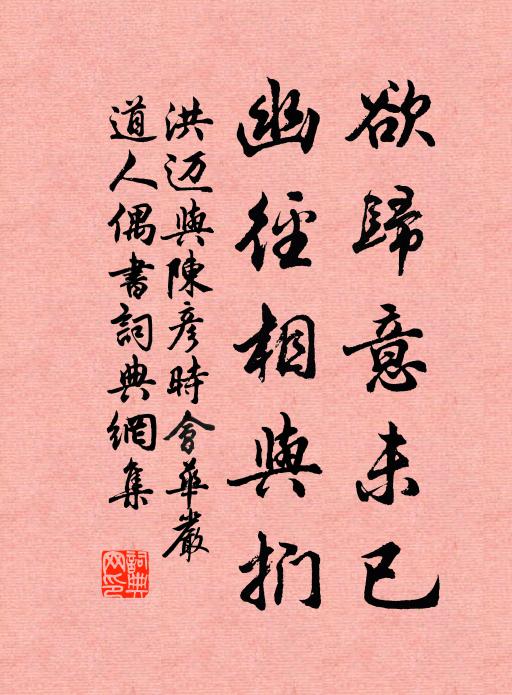 欲歸意未已
幽徑相與捫
洪迈與陳彦時會華嚴
道人偶書詞典網集
詞典網印